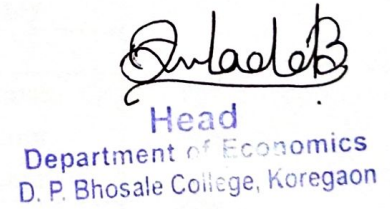 Head
Department of Economics
D. P. Bhosale College, Koregaon